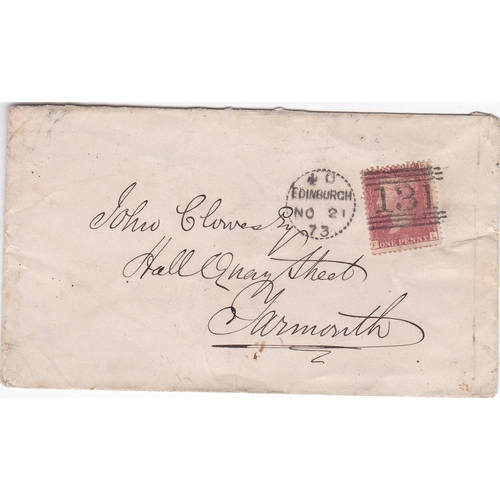 4 D
EDINBURGH
NO 21
73
131
ONE PENNY
John Clowes Esq
Hall Quay Street
Yarmouth